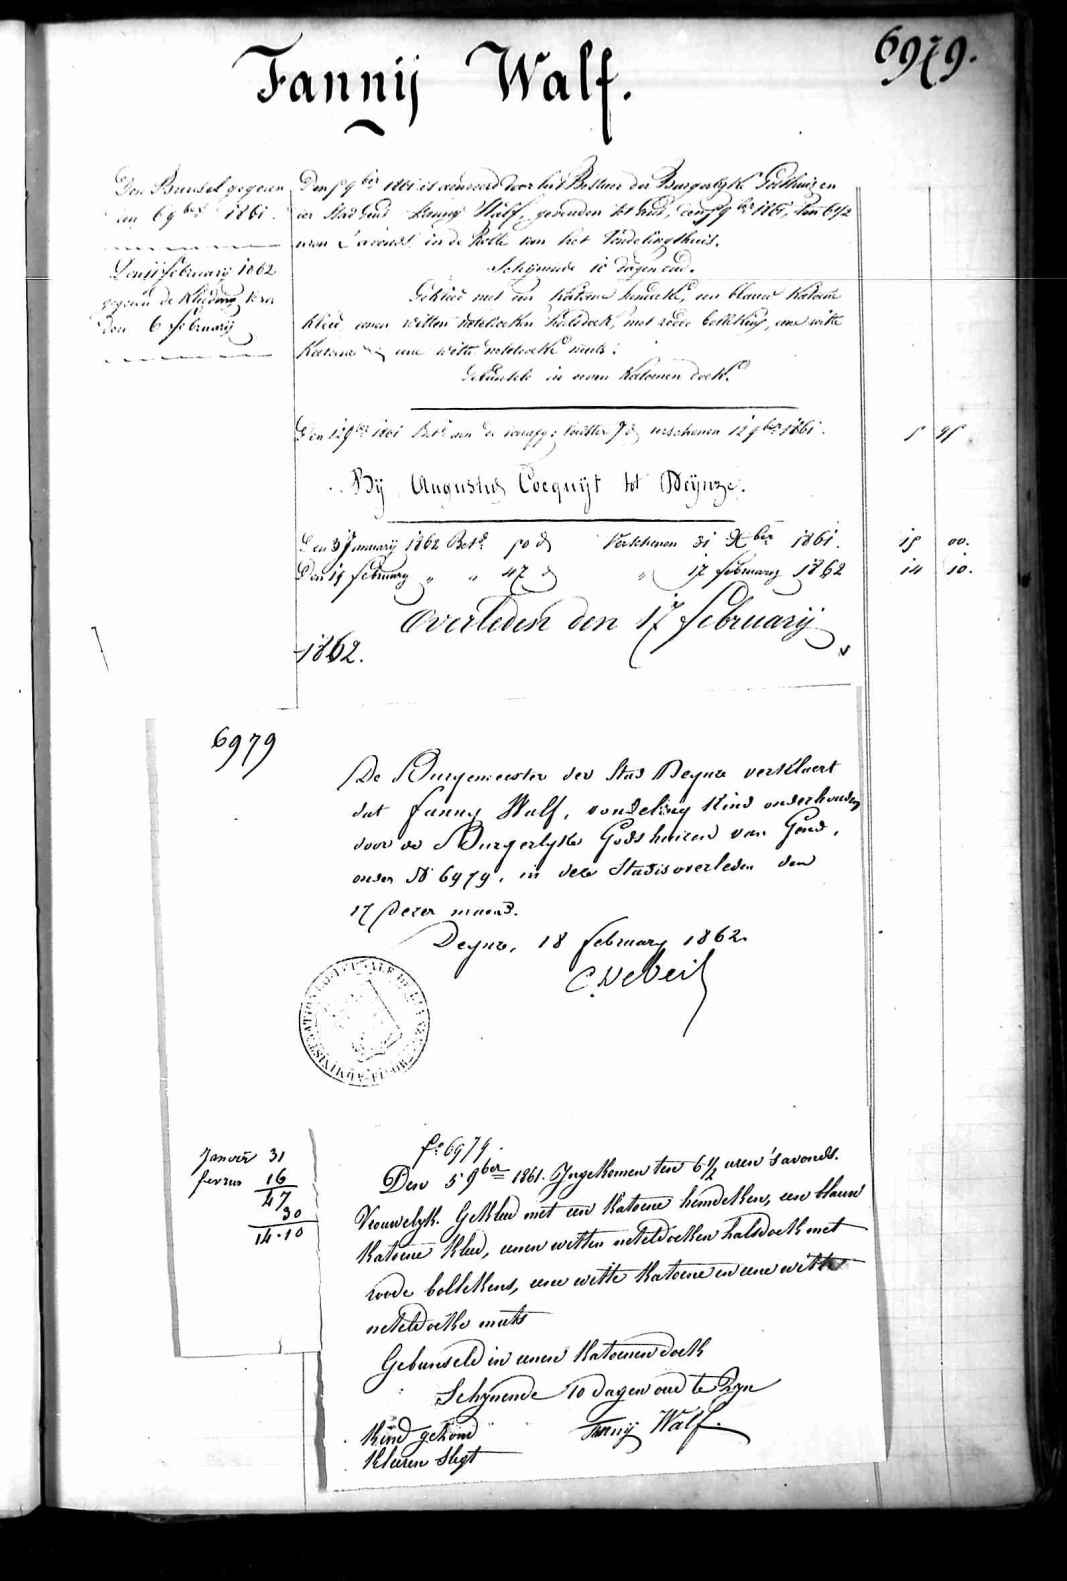 6979.
Fannij Walf.
Den Bunsel gegeven
den 6 9ber 1861.
Den 11 februarij 1862
gegeven de Kleeding voor
den 6 februarij
Den 5 9ber 1861 is aenveerd door het Bestuer der Burgerlyke Godshuizen
der Stad Gend Fanny Walf, gevonden tot Gend, den 5 9ber 1861, ten 6 1/2
uren s'avonds in de Rolle van het Vondelingshuis.
Schijnende 10 dagen oud.
Gekleed met een Katoene hemdeke, een blauw Katoene
kleed, eenen witten neteldoeken halsdoek, met roode bollekens, eene witte
Katoene en eene witte neteldoeke muts.
Gebunseld in eenen Katoenen doek.
Den 12 9ber 1861 Bet. aen de verschenen 12 9ber 1861.
5 95
Bij Augustus Cocquijt tot Deijnze.
Den 3 January 1862 Bet. 50 d Verschenen 31 Xber 1861.
15 00.
Den 19 february " " 47 d " 17 february 1862
14 10.
Overleden den 17 februarij
1862.
6979
De Burgemeester der Stad Deynze verklaert
dat Fanny Walf, vondeling Kind onderhouden
door de Burgerlyke Godshuizen van Gend,
onder No 6979, in deze Stad is overleden den
17 dezer maend.
Deynze, 18 february 1862.
ADMINISTRATION COMMUNALE DE
fo 6979.
Den 5 9ber 1861. Ingekomen ten 6 1/2 uren 's avonds.
Vrouwelyk. Gekleed met een Katoene hemdeken, een blauw
Katoene Kleed, eenen witten neteldoeken halsdoek met
roode bollekens, eene witte Katoene en eene witte
neteldoeke muts
Gebunseld in eenen Katoenen doek
Schynende 10 dagen oud te Zyn
Kind gezond
Fanny Walf.
Kleeren Slegt
Janvier 31
fevrier 16
47
30
14.10